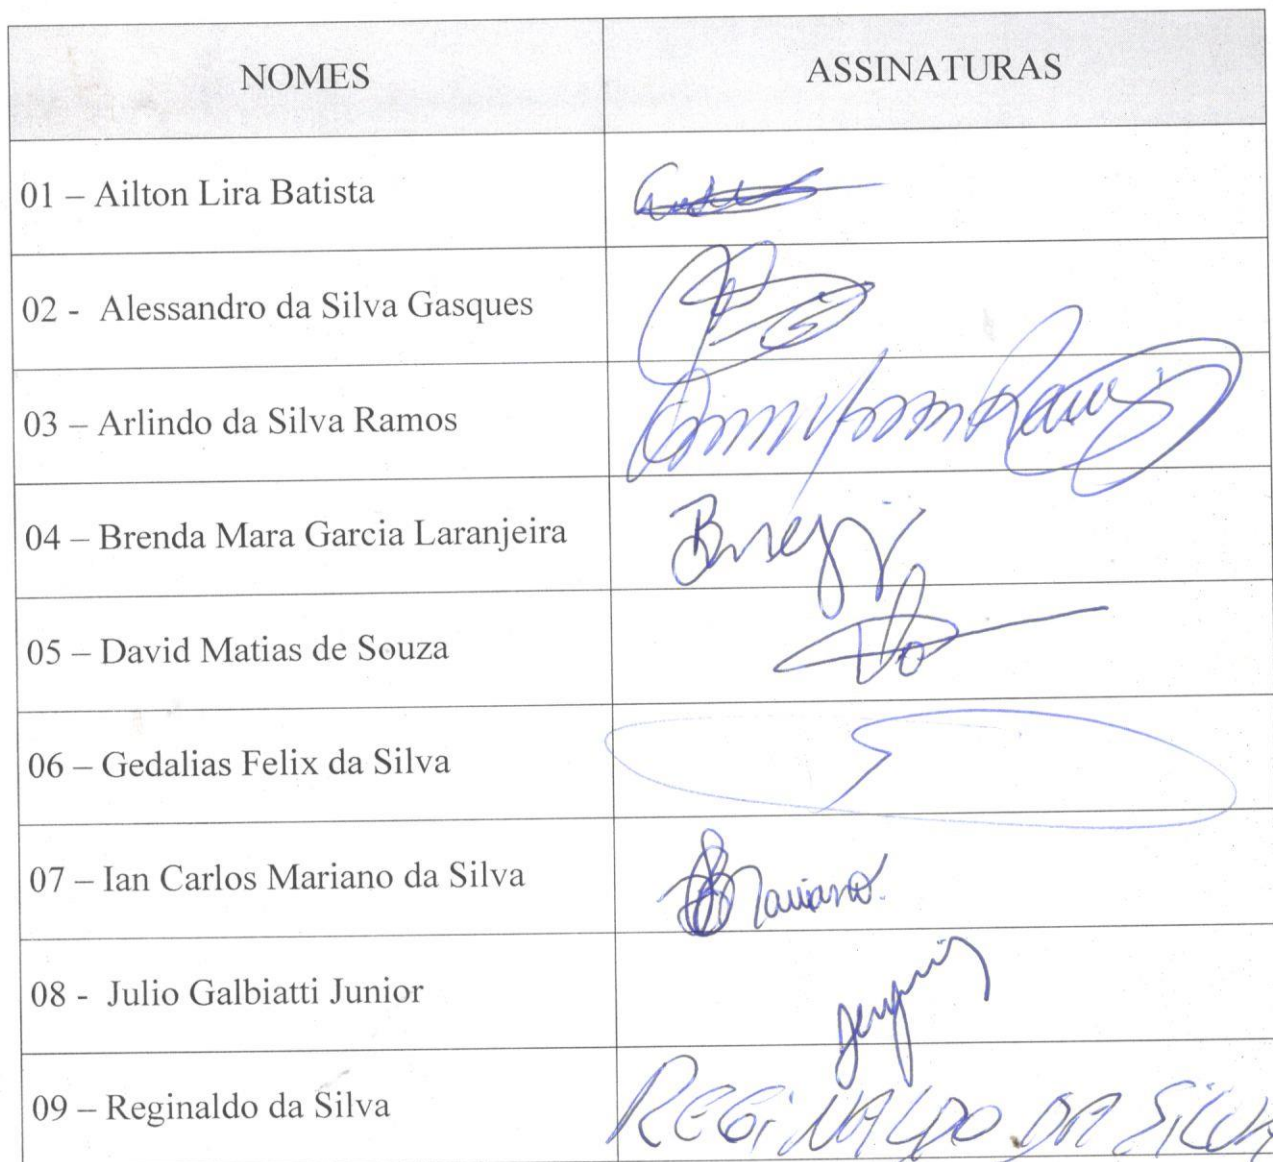 NOMES ASSINATURAS
01 – Ailton Lira Batista
02 - Alessandro da Silva Gasques
03 – Arlindo da Silva Ramos Ramos
04 – Brenda Mara Garcia Laranjeira
05 – David Matias de Souza
06 – Gedalias Felix da Silva
07 – Ian Carlos Mariano da Silva Mariano
08 - Julio Galbiatti Junior
09 – Reginaldo da Silva REGiNALDO DA SiLVA